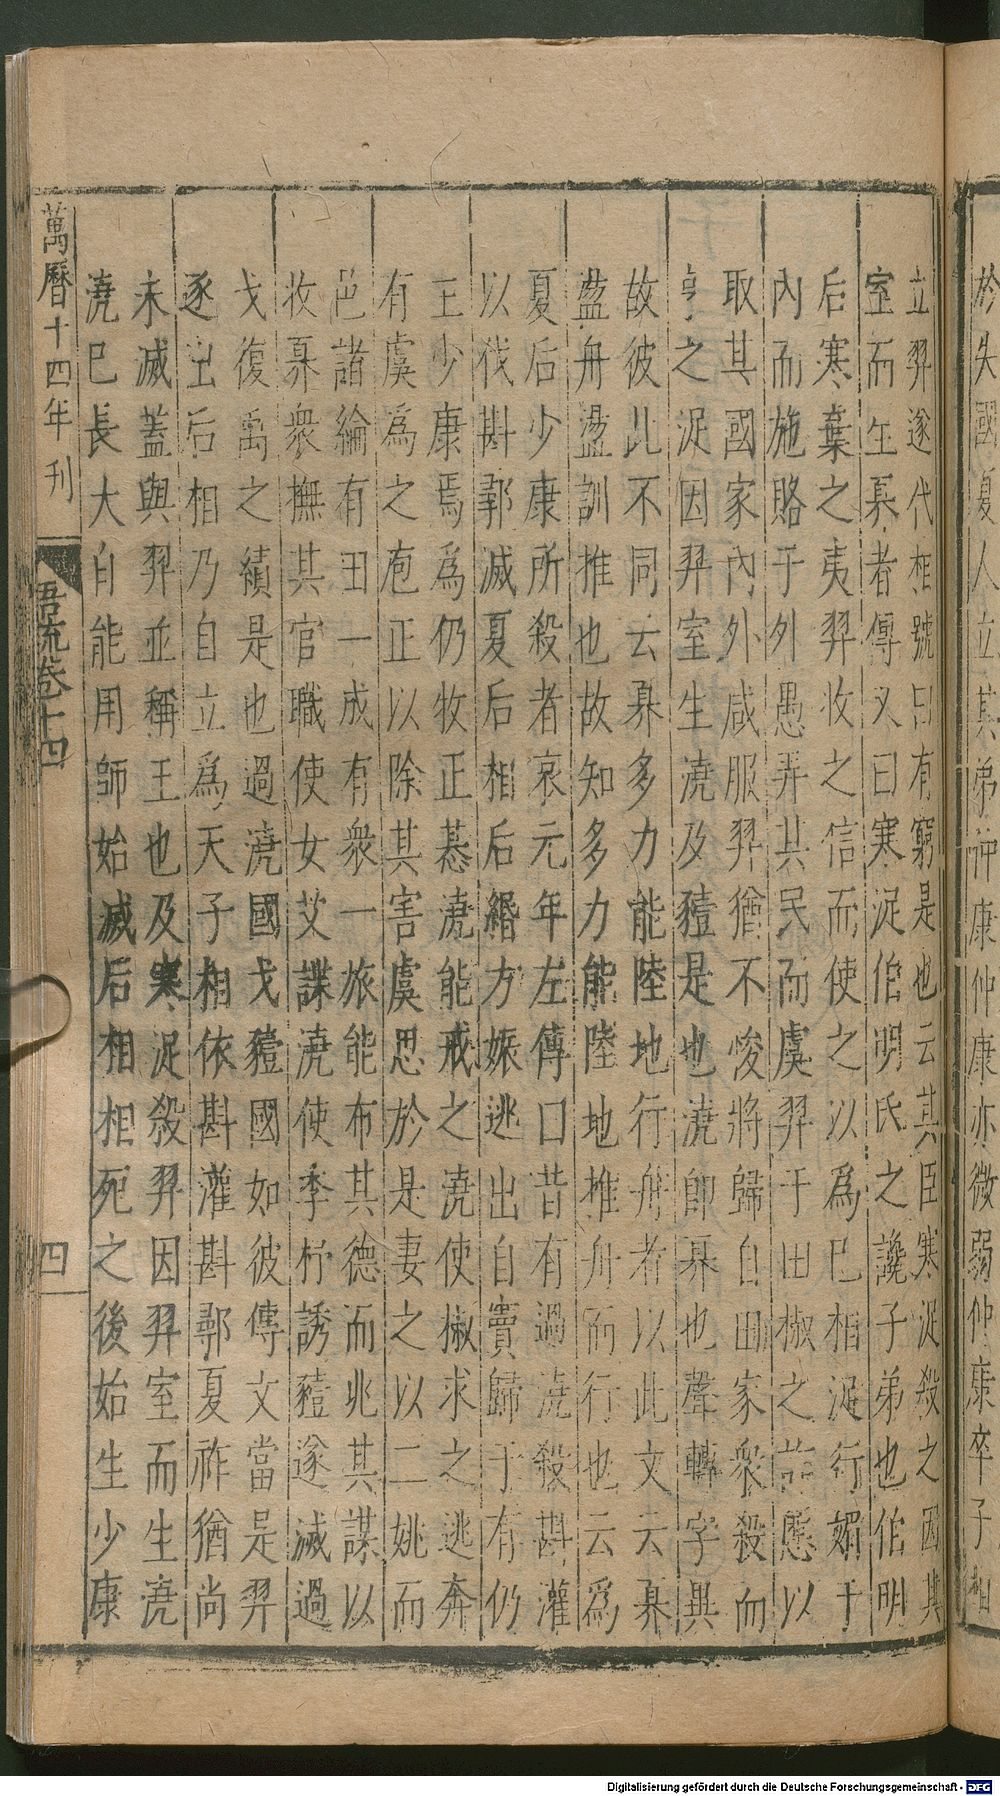 於失國夏人立其弟仲康仲康亦微弱仲康卒子相
立羿遂代相號曰有窮是也云其臣寒浞殺之因其
室而生奡者傳又曰寒浞伯明氏之讒子弟也伯明
后寒棄之夷羿收之信而使之以為己相浞行媚于
內而施賂于外愚弄其民而虞羿于田樹之詐慝以
取其國家內外咸服羿猶不悛將歸自田家衆殺而
亨之浞因羿室生澆及豷是也澆即奡也聲轉字異
故彼此不同云奡多力能陸地行舟者以此文云奡
盪舟盪訓推也故知多力能陸地推舟而行也云為
夏后少康所殺者哀元年左傳曰昔有過澆殺斟灌
以伐斟鄩滅夏后相后緡方娠逃出自竇歸于有仍
生少康焉為仍牧正惎澆能戒之澆使椒求之逃奔
有虞為之庖正以除其害虞思於是妻之以二姚而
邑諸綸有田一成有衆一旅能布其德而兆其謀以
收夏衆撫其官職使女艾諜澆使季杼誘豷遂滅過
戈復禹之績是也過澆國戈豷國如彼傳文當是羿
逐出后相乃自立為天子相依斟灌斟鄩夏祚猶尚
未滅蓋與羿並稱王也及寒浞殺羿因羿室而生澆
澆已長大自能用師始滅后相相死之後始生少康
萬曆十四年刊
語疏卷十四
四
Digitalisierung gefördert durch die Deutsche Forschungsgemeinschaft - DFG